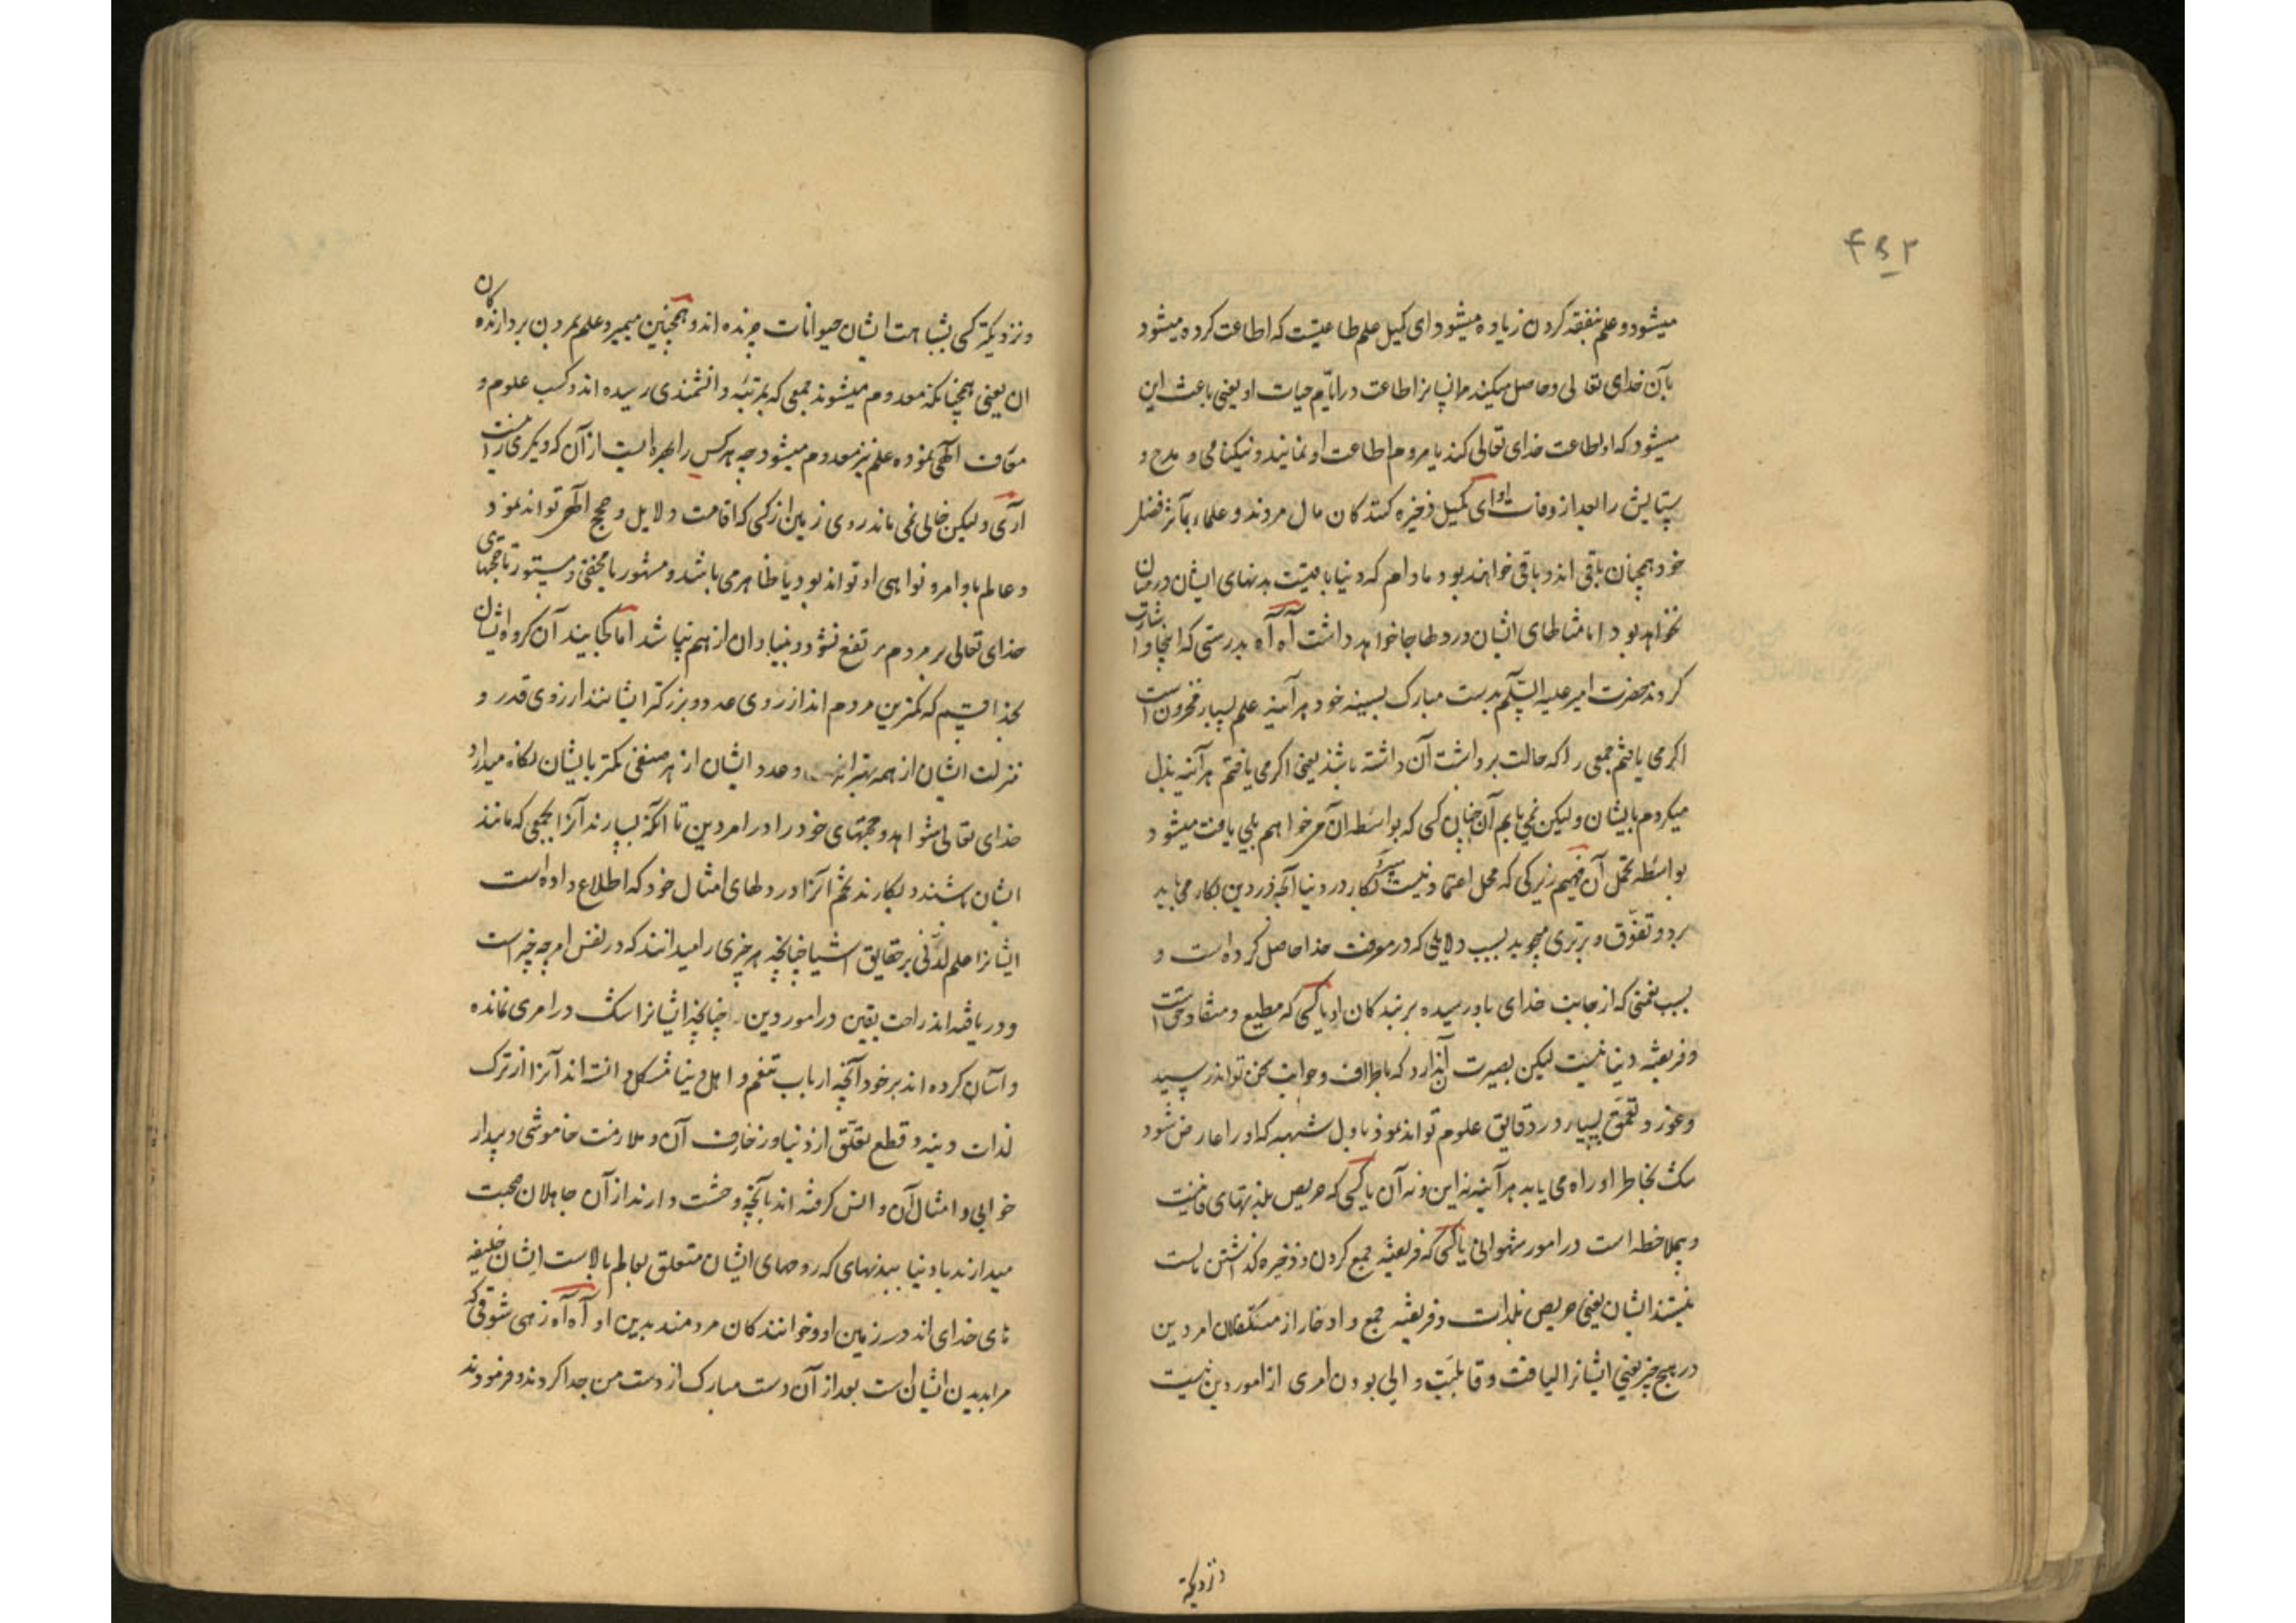 ۴۵۲
میشود و علم بنفقه کردن زیاده میشود ای کمیل علم طاعتیست که اطاعت کرده میشود
بآن خدای تعالی و حاصل میکند مر انسانرا طاعت در ایّام حیات او یعنی باعث این
میشود که او اطاعت خدای تعالی کند یا مردم اطاعت او نمایند و نیکنامی و مدح و
ستایش را بعد از وفات او ای کمیل ذخیره کنندکان مال مردند و علماء بمآثر فضل
خود همچنان باقی اند و باقی خواهند بود مادام که دنیا باقیست بدنهای ایشان در میان
نخواهد بود اما مثالهای ایشان در دلها جا خواهد داشت آه آه بدرستی که اینجا و اشارت
کردند حضرت امیر علیه السلم بدست مبارک بسینه خود هر آینه علم بسیار مخزون است
اکر می یافتم جمعی را که حالت برداشت آن داشته باشند یعنی اکر می یافتم هر آینه بذل
میکردم بایشان ولیکن نمی یابم آن چنان کسی که بواسطه آن میخواهم بلی یافت میشود
بواسطه تحمل آن فهیم زیرکی که محل اعتماد نیست بکار در دنیا آنچه در دین بکار می باید
برد و تفوّق و برتری میجوید بسبب دلایلی که در معرفت خدا حاصل کرده است و
بسبب نعمتی که از جانب خدای باو رسیده بر بندکان او یا کسی که مطیع و منقاد حق است
و فریفته دنیا نیست لیکن بصیرت آن ندارد که باطراف و جوانب سخن تواند رسید
و غور و تعمّق بسیار در دقایق علوم تواند نمود باول شبهه که او را عارض شود
شک بخاطر او راه می یابد هر آینه نه این و نه آن یا کسی که حریص بلذتهای فانیست
و بیملاحظه است در امور شهوانی یا کسی که فریفته جمع کردن و ذخیره کذاشتن است
نیستند ایشان یعنی حریص بلذات و فریفته جمع و ادخار از متکفلان امر دین
در هیچ چیز یعنی ایشانرا لیاقت و قابلیّت والی بودن امری از امور دین نیست
و نزدیکتر
و نزدیکتر کسی بشباهت ایشان حیوانات چرنده اند و همچنین میمیرد علم بمردن بردارندکان
ان یعنی همچنانکه معدوم میشوند جمعی که بمرتبه دانشمندی رسیده اند و کسب علوم و
معارف الهی نموده علم نیز معدوم میشود چه هر کس را بهره ایست از آن که دیکری را نیست
آری ولیکن خالی نمی ماند روی زمین از کسی که اقامت دلایل و حجج الهی تواند نمود
و عالم باوامر و نواهی او تواند بود یا ظاهر می باشد و مشهور یا مخفی و مستور تا حجتهای
خدای تعالی بر مردم مرتفع نشود و بنیاد ان از هم نپاشد اما کجایند آن کروه ایشان
بخدا قسم که کمترین مردم اند از روی عدد و بزرکتر ایشانند از روی قدر و
منزلت ایشان از همه بیشتر است و عدد ایشان از هر صنفی کمتر بایشان نکاه میدارد
خدای تعالی شواهد و حجتهای خود را در امر دین تا آنکه بسپارند آنرا بجمعی که مانند
ایشان باشند و بکارند تخم آنرا در دلهای امثال خود که اطلاع داده است
ایشانرا علم لدّنی بر حقایق اشیا چنانچه هر چیزی را میدانند که در نفس امر چه چیز است
و دریافته اند راحت یقین در امور دین چنانچه ایشانرا شک در امری نمانده
و آسان کرده اند بر خود آنچه ارباب تنعم و اهل دنیا مشکل دانسته اند آنرا از ترک
لذات دنیه و قطع تعلّق از دنیا و زخارف آن و ملازمت خاموشی و بیدار
خوابی و امثال آن و انس کرفته اند بآنچه وحشت دارند از آن جاهلان صحبت
میدارند با دنیا ببدنهای که روحهای ایشان متعلق بعالم بالاست ایشان خلیفه
های خدای اند در زمین او و خوانندکان مردمند بدین او آه آه زهی شوقی که
مرا بدیدن ایشان است بعد از آن دست مبارک از دست من جدا کردند و فرمودند